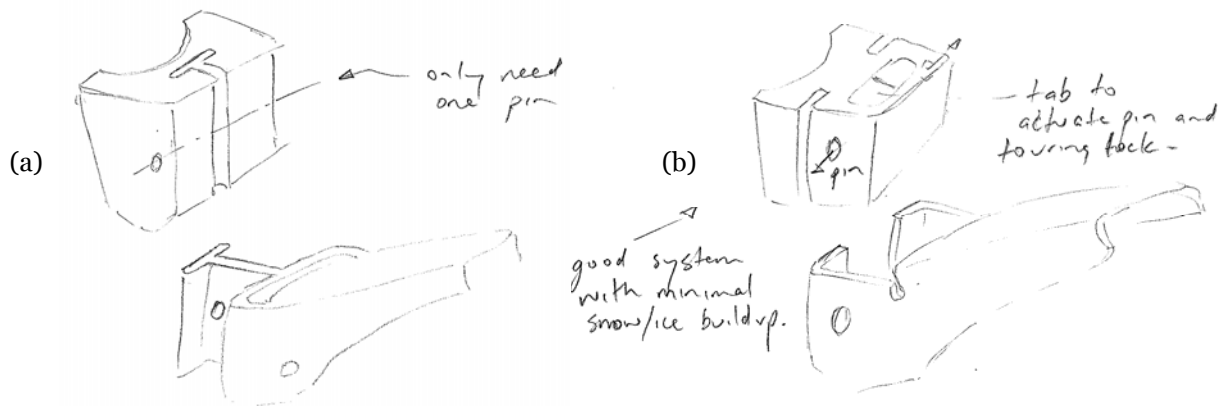 (a)
only need
one pin
(b)
tab to
actuate pin and
touring lock -
pin
good system
with minimal
snow/ice buildup.